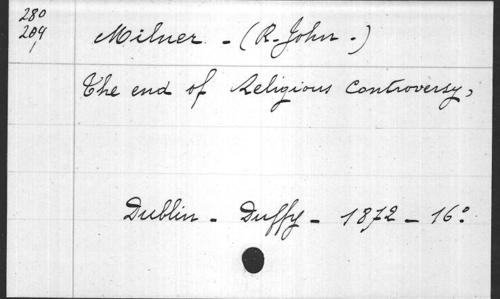 280
204
Milner - (R. John -)
The end of Religious Controversy,
Dublin - Duffy - 1872 - 16º